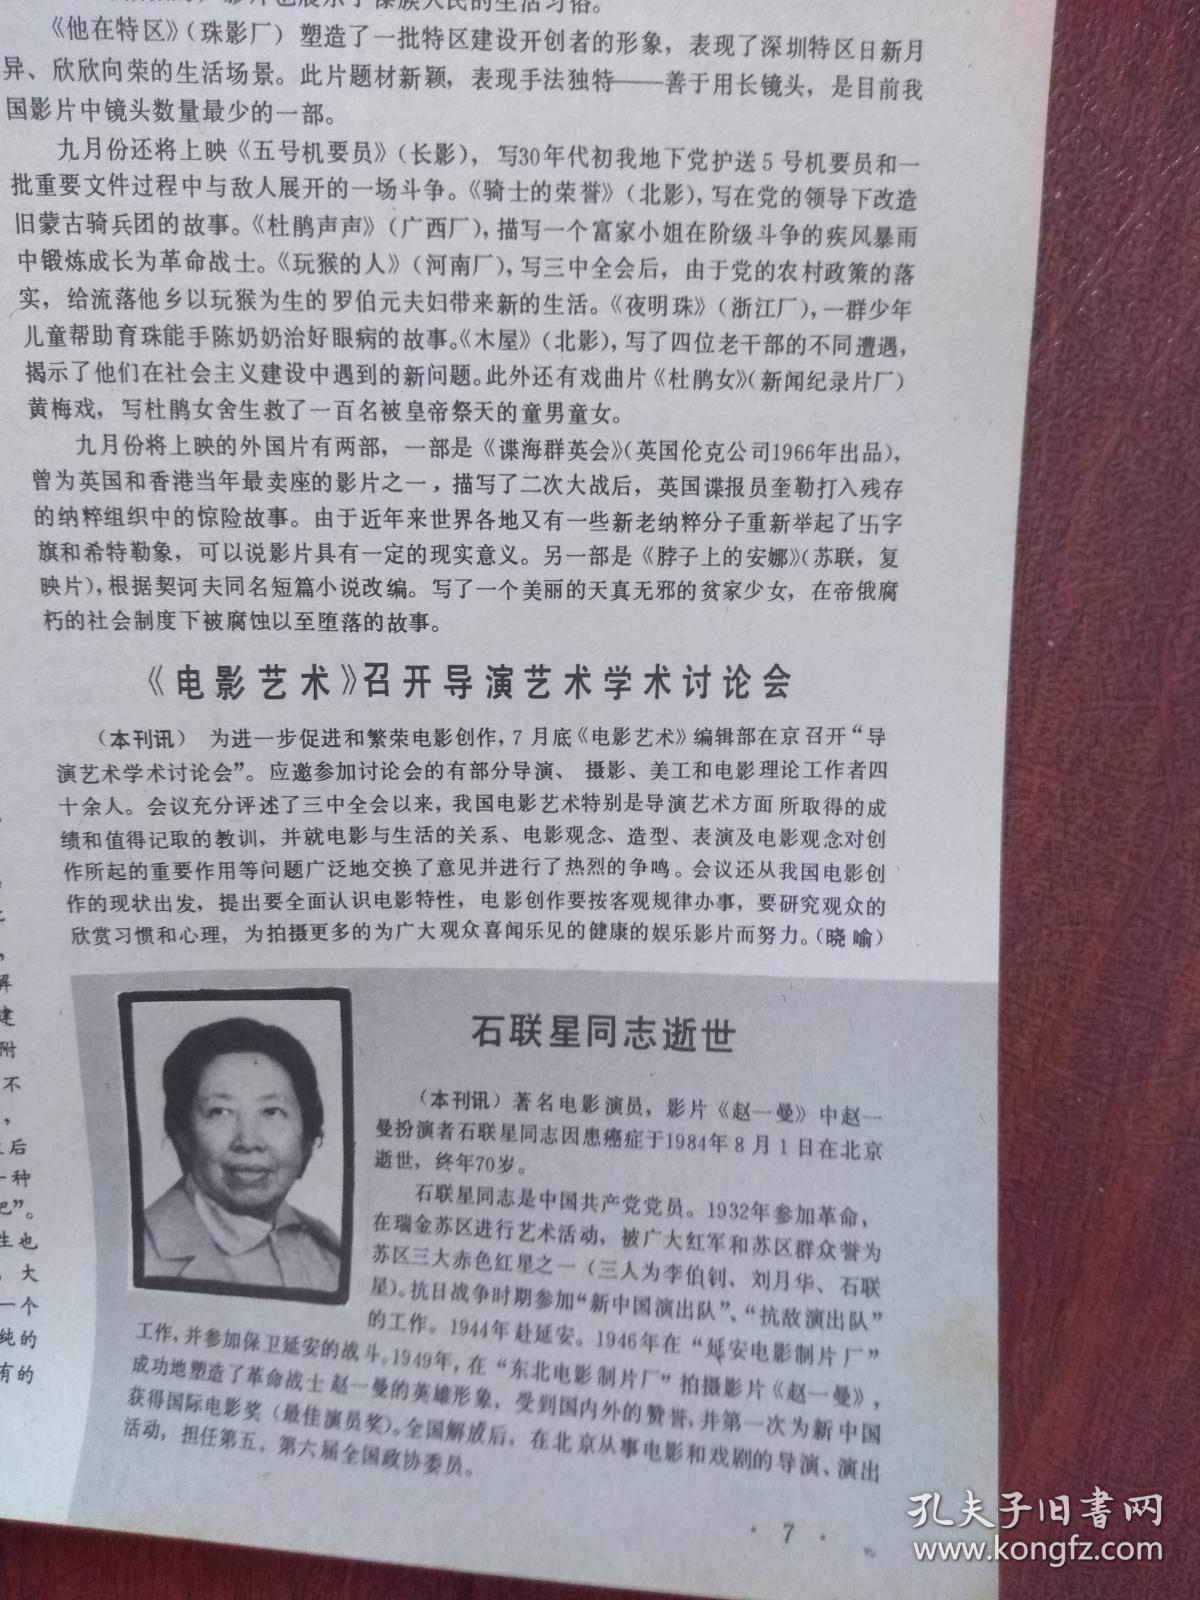 《他在特区》（珠影厂）塑造了一批特区建设开创者的形象，表现了深圳特区日新月
异、欣欣向荣的生活场景。此片题材新颖，表现手法独特——善于用长镜头，是目前我
国影片中镜头数量最少的一部。
九月份还将上映《五号机要员》（长影），写30年代初我地下党护送5号机要员和一
批重要文件过程中与敌人展开的一场斗争。《骑士的荣誉》（北影），写在党的领导下改造
旧蒙古骑兵团的故事。《杜鹃声声》（广西厂），描写一个富家小姐在阶级斗争的疾风暴雨
中锻炼成长为革命战士。《玩猴的人》（河南厂），写三中全会后，由于党的农村政策的落
实，给流落他乡以玩猴为生的罗伯元夫妇带来新的生活。《夜明珠》（浙江厂），一群少年
儿童帮助育珠能手陈奶奶治好眼病的故事。《木屋》（北影），写了四位老干部的不同遭遇，
揭示了他们在社会主义建设中遇到的新问题。此外还有戏曲片《杜鹃女》（新闻纪录片厂）
黄梅戏，写杜鹃女舍生救了一百名被皇帝祭天的童男童女。
九月份将上映的外国片有两部，一部是《谍海群英会》（英国伦克公司1966年出品），
曾为英国和香港当年最卖座的影片之一，描写了二次大战后，英国谍报员奎勒打入残存
的纳粹组织中的惊险故事。由于近年来世界各地又有一些新老纳粹分子重新举起了卐字
旗和希特勒象，可以说影片具有一定的现实意义。另一部是《脖子上的安娜》（苏联，复
映片），根据契诃夫同名短篇小说改编。写了一个美丽的天真无邪的贫家少女，在帝俄腐
朽的社会制度下被腐蚀以至堕落的故事。
《电影艺术》召开导演艺术学术讨论会
（本刊讯） 为进一步促进和繁荣电影创作，7月底《电影艺术》编辑部在京召开“导
演艺术学术讨论会”。应邀参加讨论会的有部分导演、摄影、美工和电影理论工作者四
十余人。会议充分评述了三中全会以来，我国电影艺术特别是导演艺术方面所取得的成
绩和值得记取的教训，并就电影与生活的关系、电影观念、造型、表演及电影观念对创
作所起的重要作用等问题广泛地交换了意见并进行了热烈的争鸣。会议还从我国电影创
作的现状出发，提出要全面认识电影特性，电影创作要按客观规律办事，要研究观众的
欣赏习惯和心理，为拍摄更多的为广大观众喜闻乐见的健康的娱乐影片而努力。（晓喻）
石联星同志逝世
（本刊讯）著名电影演员，影片《赵一曼》中赵一
曼扮演者石联星同志因患癌症于1984年8月1日在北京
逝世，终年70岁。
石联星同志是中国共产党党员。1932年参加革命，
在瑞金苏区进行艺术活动，被广大红军和苏区群众誉为
苏区三大赤色红星之一（三人为李伯钊、刘月华、石联
星）。抗日战争时期参加“新中国演出队”、“抗敌演出队”
的工作。1944年赴延安。1946年在“延安电影制片厂”
工作，并参加保卫延安的战斗。1949年，在“东北电影制片厂”拍摄影片《赵一曼》，
成功地塑造了革命战士赵一曼的英雄形象，受到国内外的赞誉，并第一次为新中国
获得国际电影奖（最佳演员奖）。全国解放后，在北京从事电影和戏剧的导演、演出
活动，担任第五、第六届全国政协委员。
· 7 ·
解
建
附
不
，
后
一种
吧”。
生也
，大
一个
纯的
有的
孔夫子旧书网
www.kongfz.com